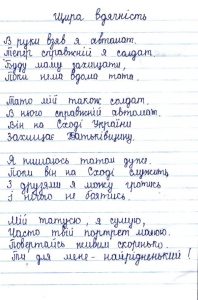 Щира вдячність
В руки взяв я автомат.
Тепер справжній я солдат.
Буду маму захищати,
Поки нема вдома тата.
Тато мій також солдат.
В нього справжній автомат.
Він на Сході України
Захищає Батьківщину.
Я пишаюсь татом дуже.
Поки він на Сході служить,
З друзями я можу гратись
І нічого не боятись.
Мій татусю, я сумую,
Часто твій портрет малюю.
Повертайсь живим скоренько.
Ти для мене - найрідненький!